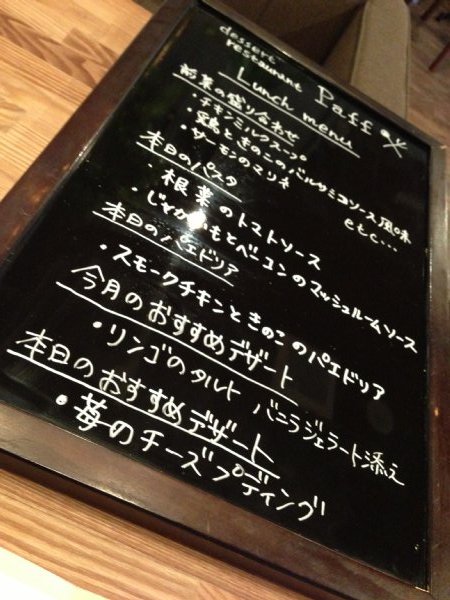 dessert
restaurant Paff
Lunch menu
前菜の盛り合わせ
・チキンミルクスープ
・鶏ときのこのバルサミコソース風味
・サーモンのマリネ etc…
本日のパスタ
・根菜のトマトソース
・じゃがいもとベーコンのマッシュルームソース
本日のパエドリア
・スモークチキンときのこのパエドリア
今月のおすすめデザート
・リンゴのタルト バニラジェラート添え
本日のおすすめデザート
・苺のチーズプディング